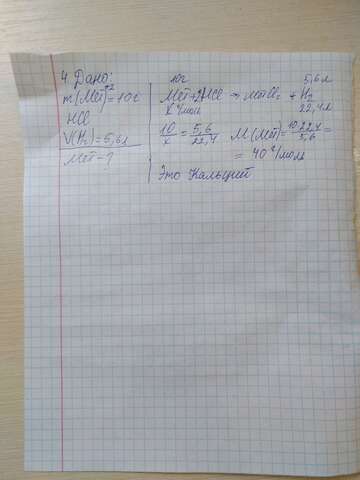 4. Дано:
m(Me⁺²)=10г
HCl
V(H₂)=5,6л
Мет - ?
10г 5,6л
Мет+2HCl → МетCl₂ + H₂
x г/моль 22,4л
10/x = 5,6/22,4 M(Мет) = 10·22,4/5,6 =
= 40 г/моль
Это Кальций